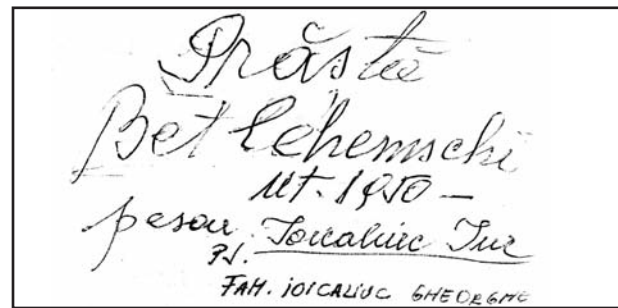 Prăstie
Betlehemschi
ut. 1950 —
pesau Ioicaliuc Iur
P.V.
FAM. IOICALIUC GHEORGHE